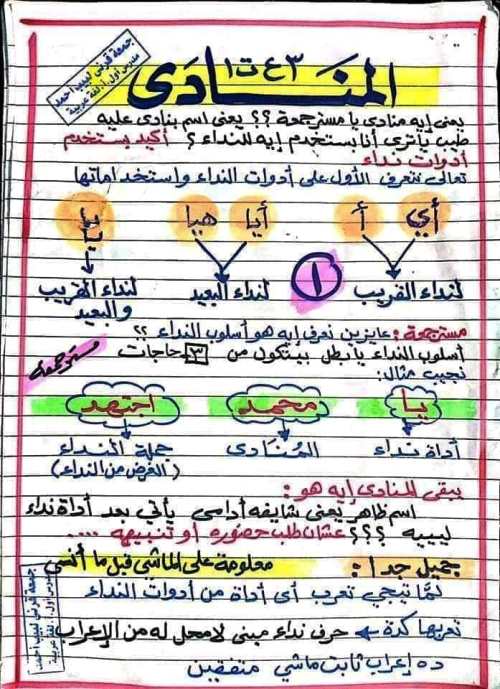 المنادى
٣ ع ت١
جمعة قرني لبيب أحمد
مدرس أول أ لغة عربية
يعنى إيه منادى يا مستر جمعة ؟؟ يعنى اسم بنادى عليه
طيب ياترى أنا بستخدم إيه للنداء ؟ أكيد بستخدم
أدوات نداء
تعالى نتعرف الأول على أدوات النداء واستخداماتها
أي أ أيا هيا يا
يا
لنداء القريب ١ لنداء البعيد لنداء القريب
والبعيد
مسترجمعة : عايزين نعرف إيه هو أسلوب النداء ؟؟
أسلوب النداء يا بطل بيتكون من ٣ حاجات
مسترجمعة
نجيب مثال :
يا محمد اجتهد
أداة نداء المُنَادَى جملة النداء
(الغرض من النداء)
يبقى المنادى إيه هو :
اسم ظاهر يعنى شايفه أدامى يأتي بعد أداة نداء
ليييه ؟؟؟ عشان طلب حضوره أو تنبيهه ....
جميل جدا : معلومة على الماشي قبل ما أنسى
لمَّا تيجي تعرب أى أداة من أدوات النداء
تعربها كدة ← حرف نداء مبنى لا محل له من الإعراب
ده إعراب ثابت ماشي متفقين
جمعة قرني لبيب أحمد
مدرس أول أ لغة عربية